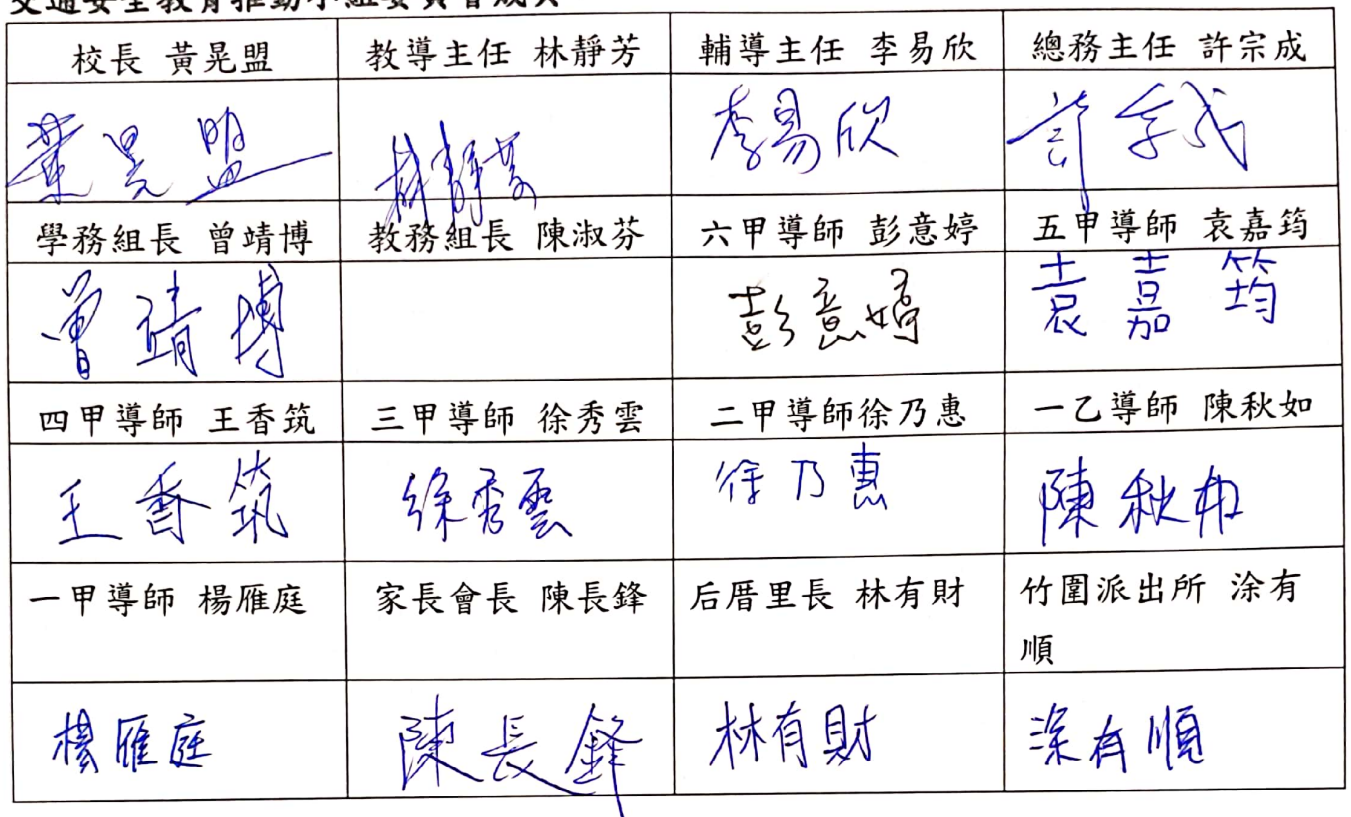 交通安全教育推動小組委員會成員
校長 黃晃盟
教導主任 林靜芳
輔導主任 李易欣
總務主任 許宗成
黃晃盟
林靜芳
李易欣
許宗成
學務組長 曾靖博
教務組長 陳淑芬
六甲導師 彭意婷
五甲導師 袁嘉筠
曾靖博
彭意婷
袁嘉筠
四甲導師 王香筑
三甲導師 徐秀雲
二甲導師徐乃惠
一乙導師 陳秋如
王香筑
徐秀雲
徐乃惠
陳秋如
一甲導師 楊雁庭
家長會長 陳長鋒
后厝里長 林有財
竹圍派出所 涂有
順
楊雁庭
陳長鋒
林有財
涂有順